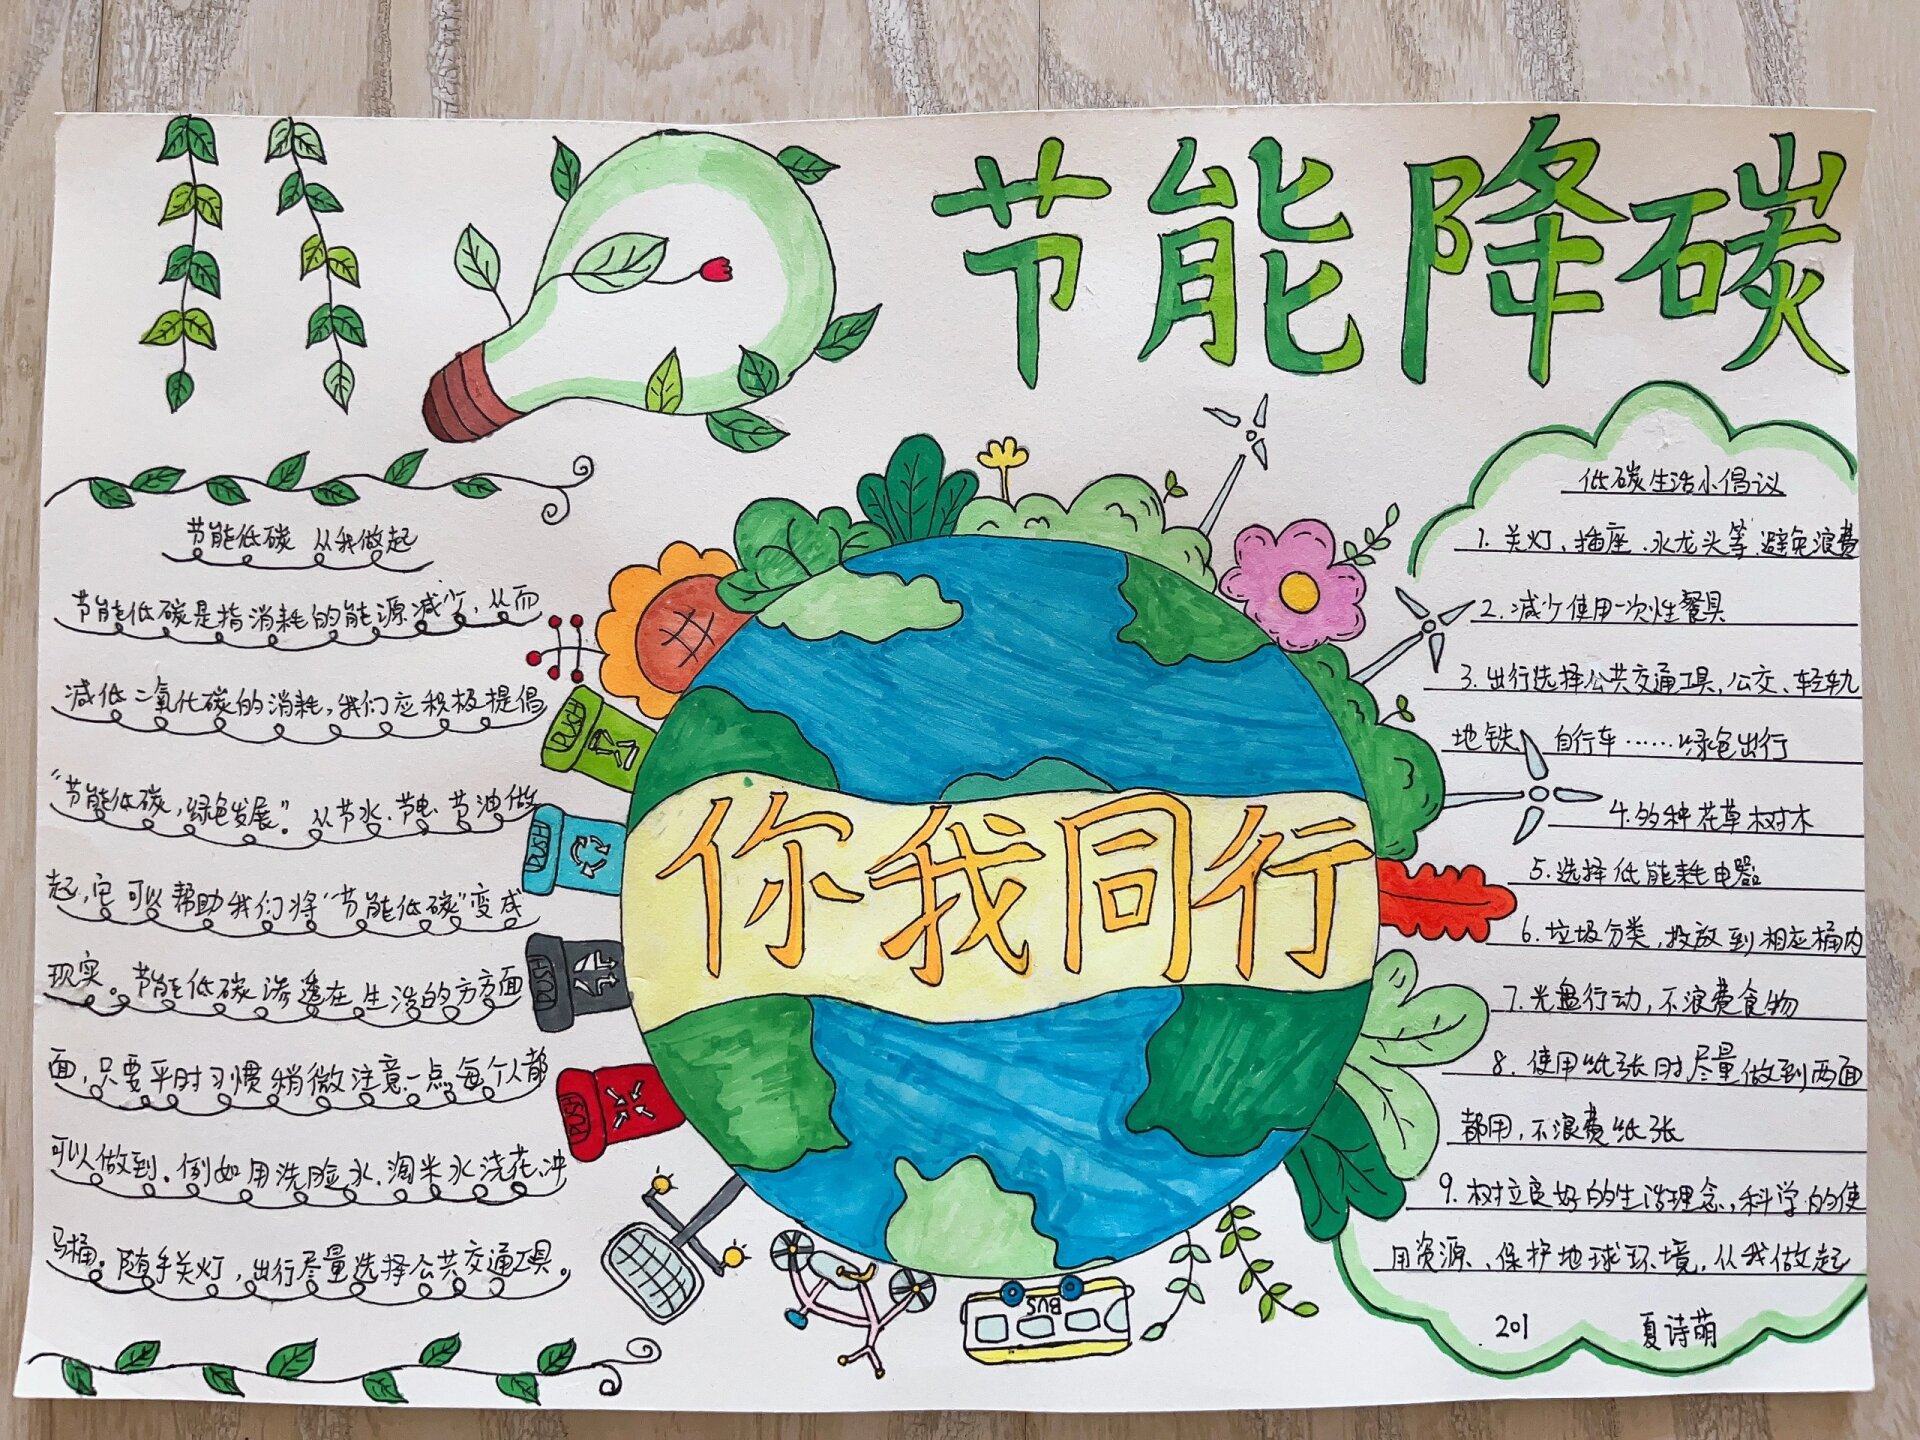 节能降碳
节能低碳 从我做起
节能低碳是指消耗的能源减少，从而
减低二氧化碳的消耗，我们应积极提倡
“节能低碳，绿色发展”。从节水、节电、节油做
起，它可以帮助我们将“节能低碳”变成
现实。节能低碳渗透在生活的方方面
面，只要平时习惯稍微注意一点每个人都
可以做到。例如用洗脸水、淘米水浇花、冲
马桶。随手关灯，出行尽量选择公共交通工具。
PUSH
PUSH
PUSH
PUSH
你我同行
BUS
低碳生活小倡议
1. 关灯、插座、水龙头等避免浪费
2. 减少使用一次性餐具
3. 出行选择公共交通工具，公交、轻轨
地铁、自行车……绿色出行
4. 多种花草树木
5. 选择低能耗电器
6. 垃圾分类，投放到相应桶内
7. 光盘行动，不浪费食物
8. 使用纸张时尽量做到两面
都用，不浪费纸张
9. 树立良好的生活理念，科学的使
用资源、保护地球环境，从我做起
201 夏诗萌